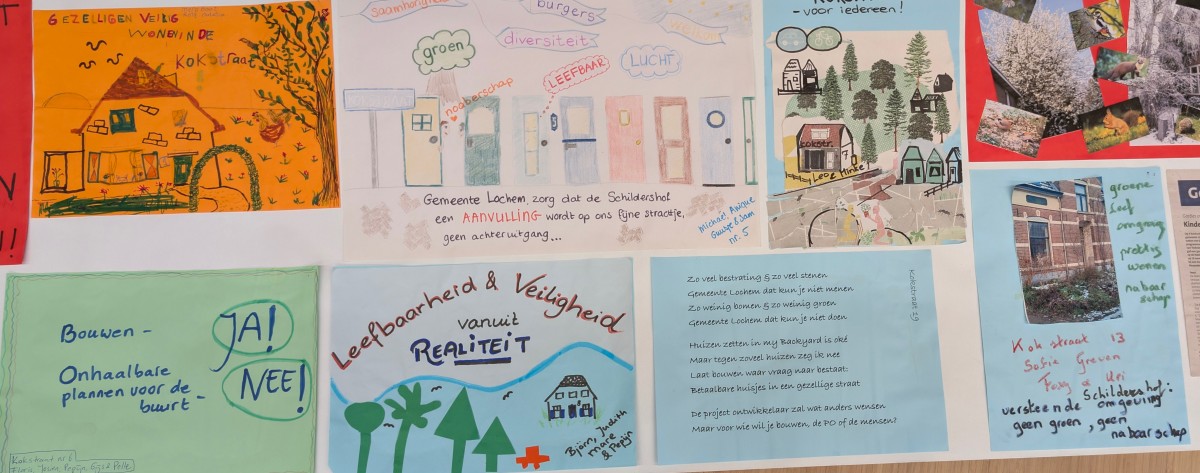 GEZELLIG EN VEILIG
WONEN IN DE
Kokstraat
saamhorigheid
burgers
diversiteit
groen
LEEFBAAR
LUCHT
noaberschap
Gemeente Lochem, zorg dat de Schildershof
een AANVULLING wordt op ons fijne straatje,
geen achteruitgang...
Michael, Anique
Guusje & Sam
nr. 5
- voor iedereen!
kokstr.
7
Leo & Minke
Bouwen - JA!
Onhaalbare
plannen voor de
buurt - NEE!
Kokstraat nr 8
Leefbaarheid & Veiligheid
vanuit
REALITEIT
Björn, Judith
Mare
& Pepijn
Kokstraat 19
Zo veel bestrating & zo veel stenen
Gemeente Lochem dat kun je niet menen
Zo weinig bomen & zo weinig groen
Gemeente Lochem dat kun je niet doen
Huizen zetten in my Backyard is oké
Maar tegen zoveel huizen zeg ik nee
Laat bouwen waar vraag naar bestaat:
Betaalbare huisjes in een gezellige straat
De project ontwikkelaar zal wat anders wensen
Maar voor wie wil je bouwen, de PO of de mensen?
groene
leef
omgeving
prettig
wonen
nabaar
schap
Kok straat 13
Sofie Greven
Foxy & Uri
Schildershof:
versteende omgeving
geen groen, geen
nabaarschap